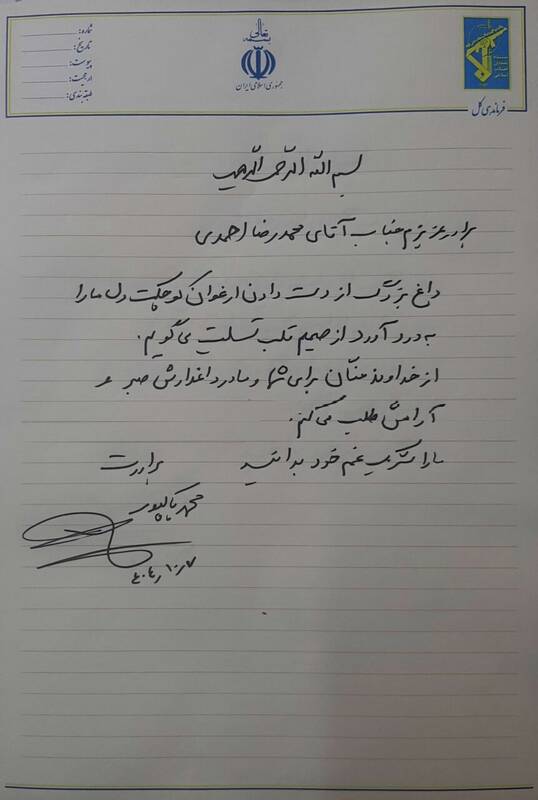 شماره:
تاریخ:
پیوست:
ارجحیت:
طبقه‌بندی:
بسمه تعالی
جمهوری اسلامی ایران
فرماندهی کل
بسم الله الرحمن الرحیم
برادر عزیزم جناب آقای محمدرضا احمدی
داغ بزرگ از دست دادن ارغوان کوچکت دل ما را
به درد آورد از صمیم قلب تسلیت می گویم.
از خداوند منّان برای شما و مادر داغدارش صبر و
آرامش طلب می کنم.
ما را شریک غم خود بدانید
برادرت
محمد پاکپور
۴۰۴٫۱۰٫۷